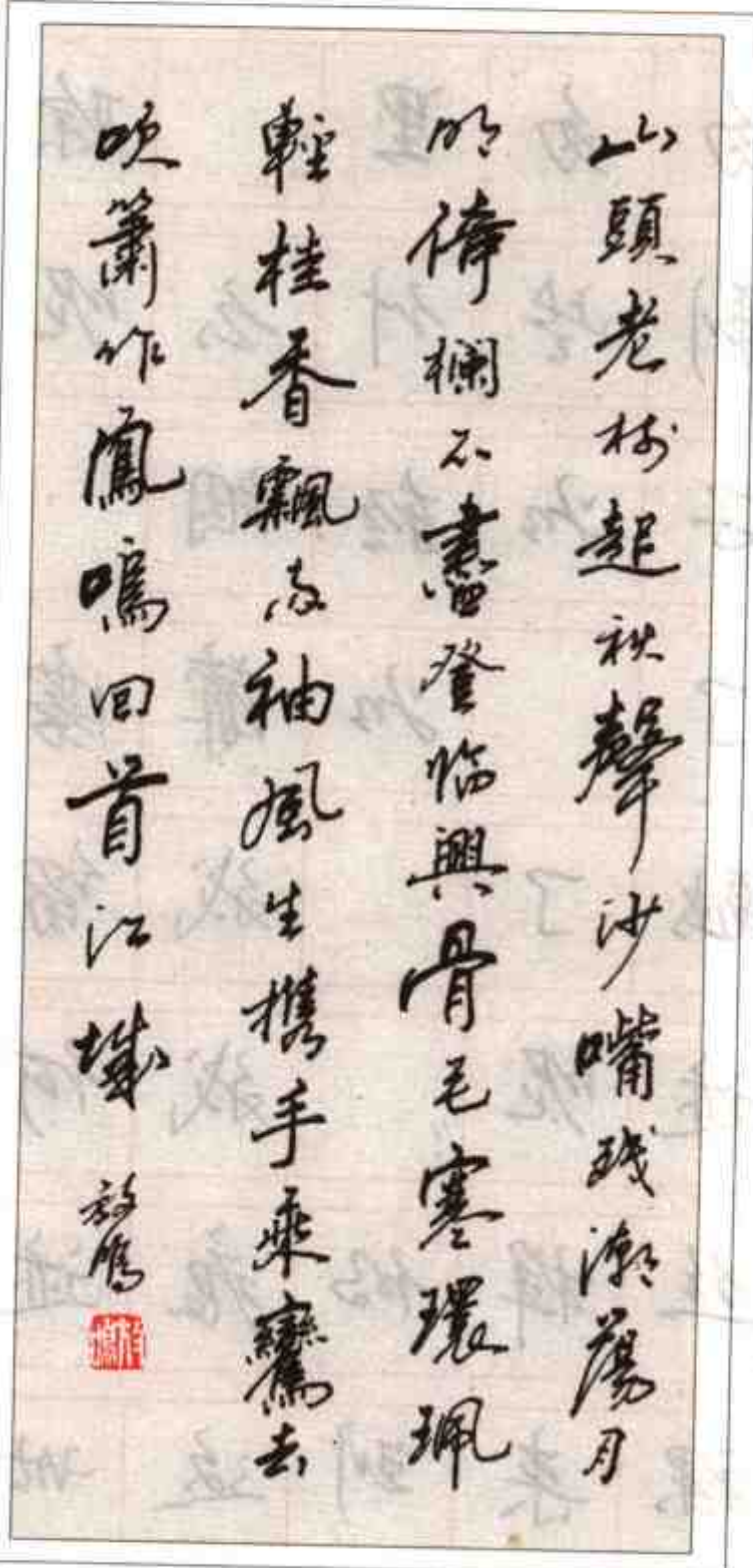 山頭老树起秋聲沙嘴残潮蕩月
明倚欄不盡登临興骨毛寒環珮
輕桂香飄両袖風生携手乘鸞去
吹簫作鳳鳴回首江城